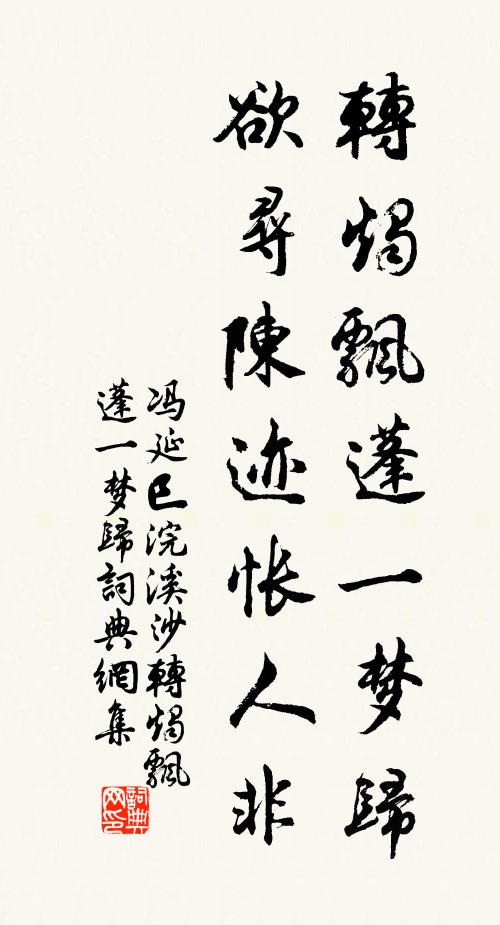 轉燭飄蓬一梦歸
欲尋陳迹悵人非
冯延巳浣溪沙轉燭飄
蓬一梦歸詞典網集
詞典
网印